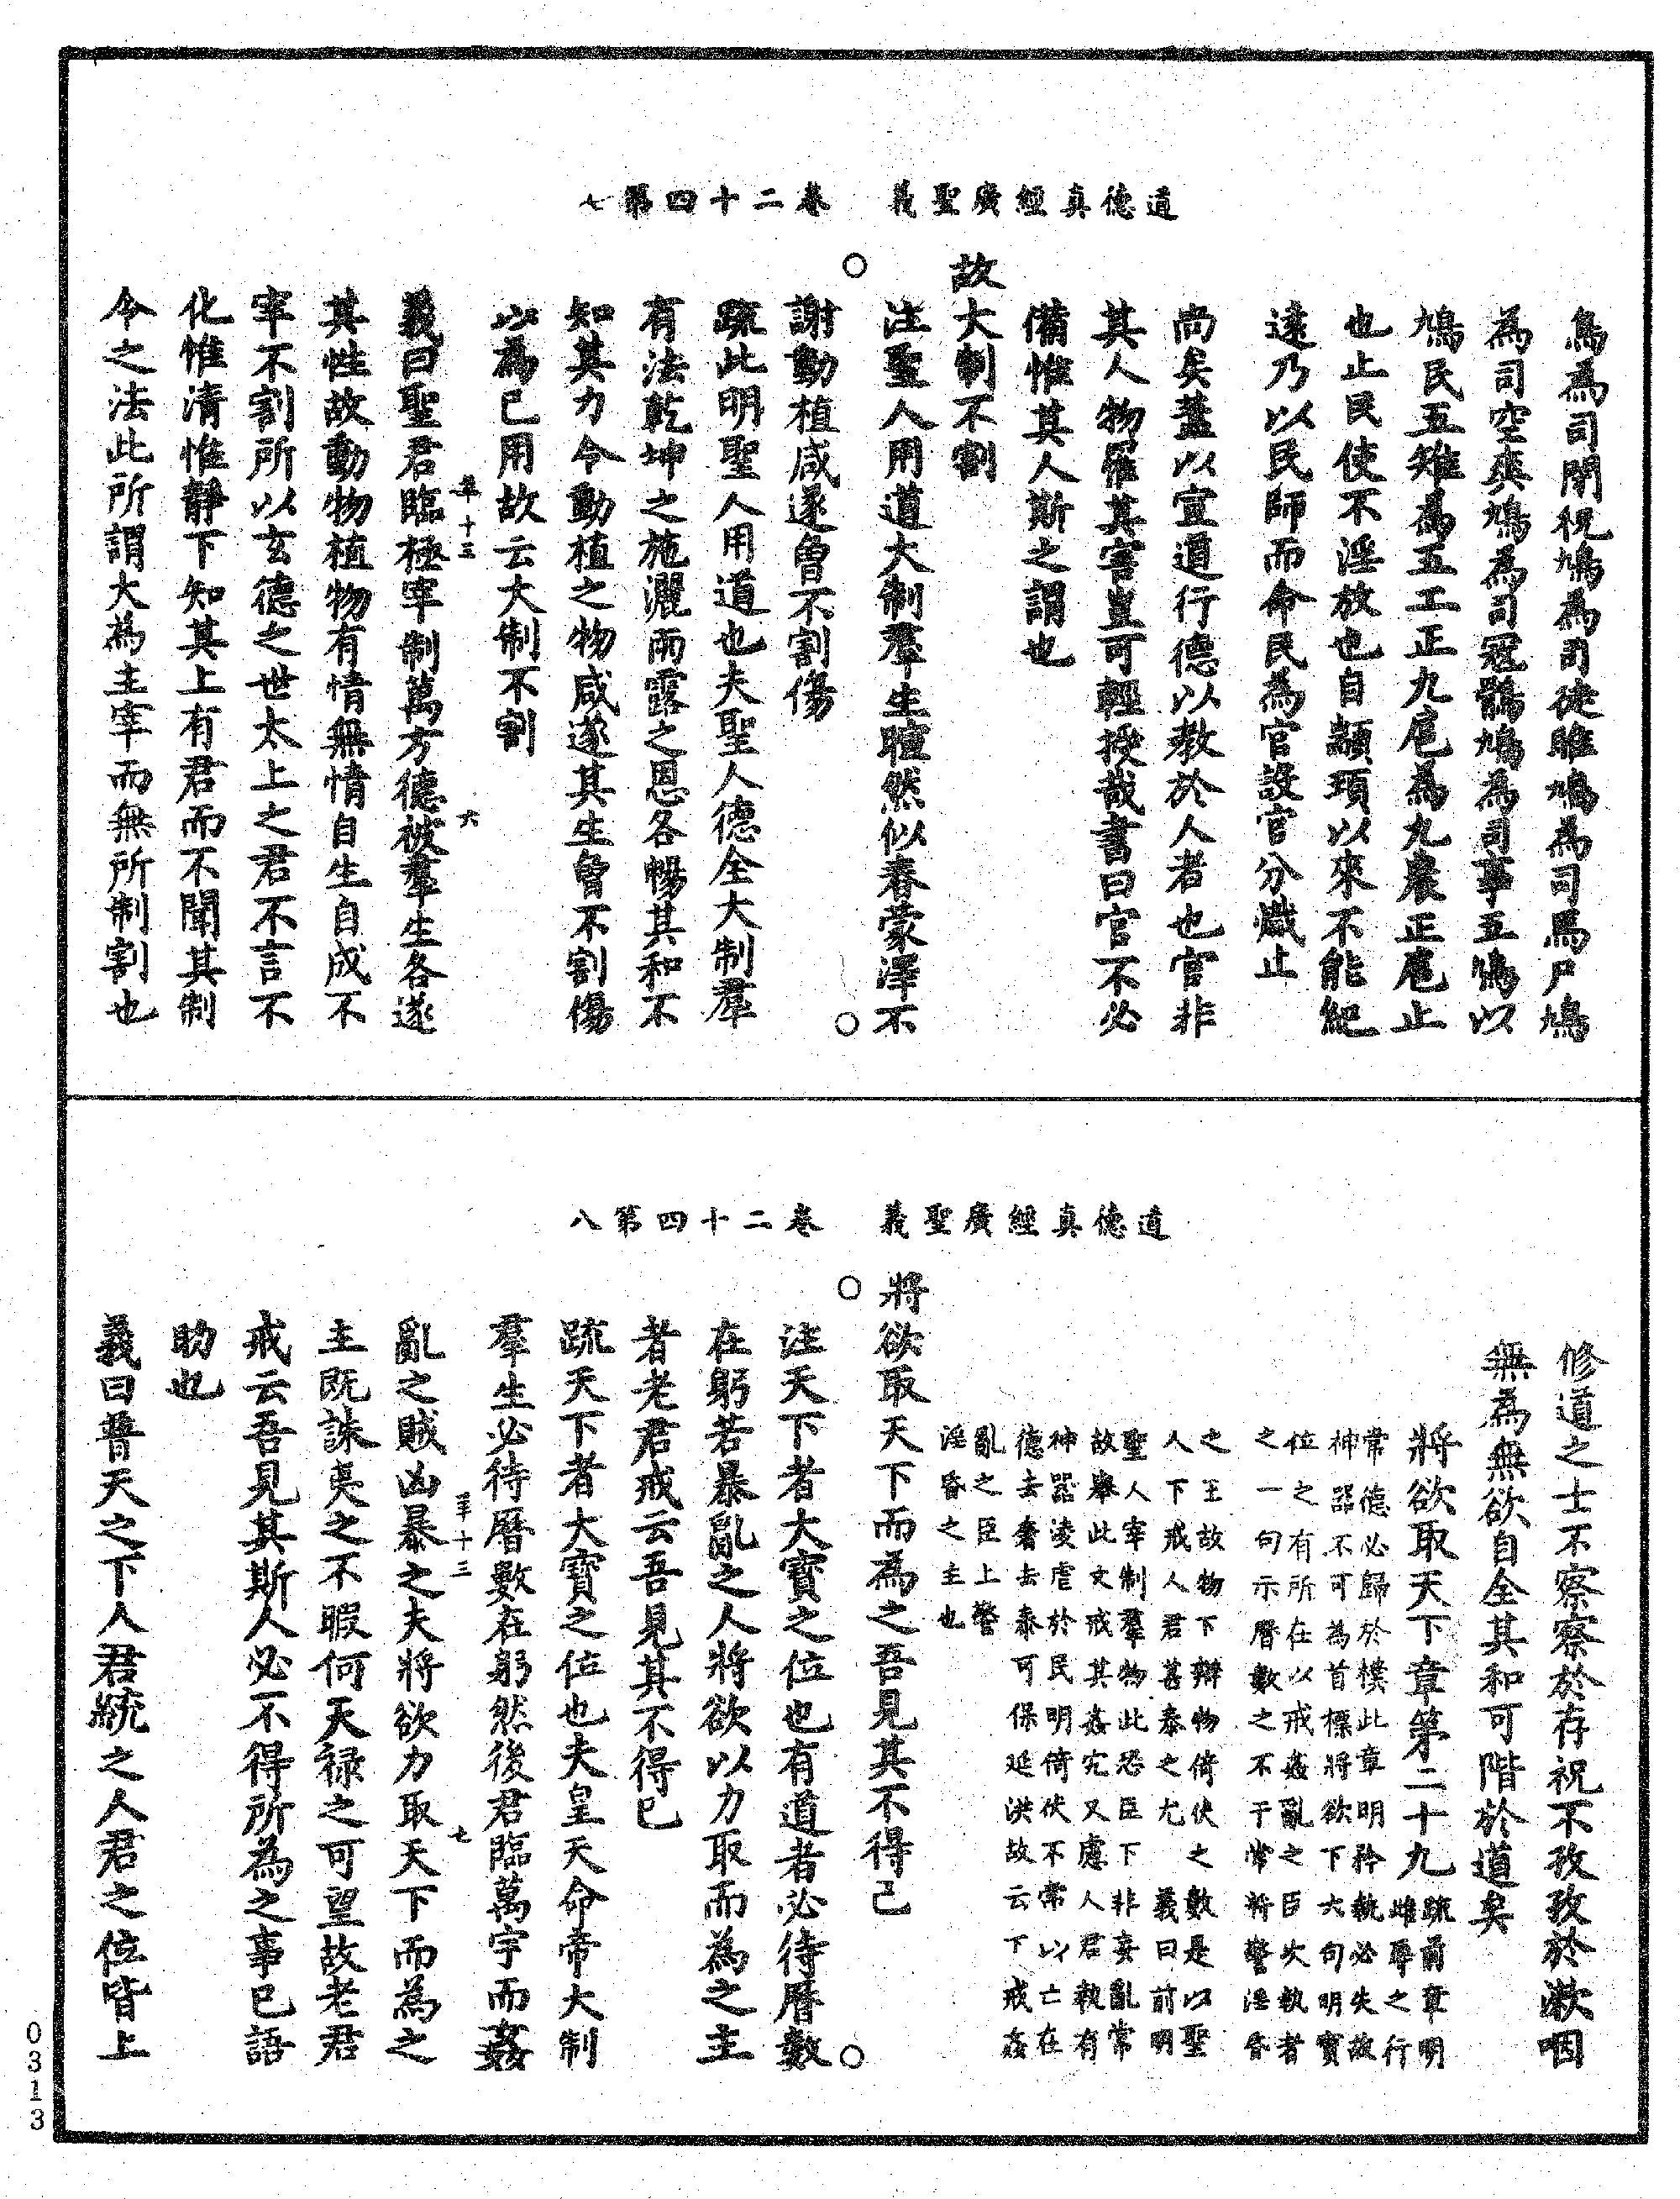 道德真經廣聖義　卷二十四第七
鳥為司閉祝鳩為司徒雎鳩為司馬尸鳩
為司空爽鳩為司冠鶻鳩為司事五鳩以
鳩民五雉為五工正九扈為九農正扈止
也止民使不淫放也自顓頊以來不能紀
遠乃以民師而命民為官設官分職止
尚矣蓋以宣道行德以教於人者也官非
其人物罹其害豈可輕授哉書曰官不必
備惟其人斯之謂也
故大制不割
注聖人用道大制羣生暄然似春蒙澤不
謝動植咸遂曾不割傷
疏此明聖人用道也夫聖人德全大制羣
有法乾坤之施灑雨露之恩各暢其和不
知其力令動植之物咸遂其生曾不割傷
以為己用故云大制不割
義曰聖君臨極宰制萬方德被羣生各遂
其性故動物植物有情無情自生自成不
宰不割所以玄德之世太上之君不言不
化惟清惟靜下知其上有君而不聞其制
令之法此所謂大為主宰而無所制割也
道德真經廣聖義　卷二十四第八
修道之士不察察於存祝不孜孜於漱咽
無為無欲自全其和可階於道矣
將欲取天下章第二十九
疏前章明雌辱之行
常德必歸於樸此章明矜執必失故
神器不可為首標將欲下六句明寳
位之有所在以戒姦亂之臣次執者
之一句示曆數之不干常將警淫昏
之王故物下辯物倚伏之數是以聖
人下戒人君甚泰之尤　義曰前明
聖人宰制羣物此恐臣下非妄亂常
故舉此文戒其姦宄又慮人君執有
神器淩虐於民明倚伏不常以亡在
德去奢去泰可保延洪故云下戒姦
亂之臣上警
淫昏之主也
將欲取天下而為之吾見其不得已
注天下者大寳之位也有道者必待曆數
在躬若暴亂之人將欲以力取而為之主
者老君戒云吾見其不得已
疏天下者大寳之位也夫皇天命帝大制
羣生必待曆數在躬然後君臨萬宇而姦
亂之賊凶暴之夫將欲力取天下而為之
主既誅夷之不暇何天禄之可望故老君
戒云吾見其斯人必不得所為之事已語
助也
義曰普天之下人君統之人君之位皆上
0313